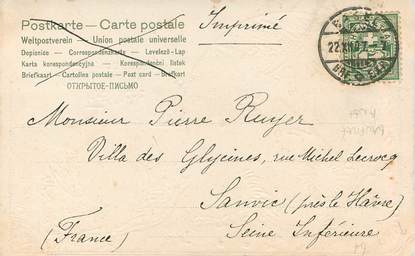 Postkarte — Carte postale
Weltpostverein — Union postale universelle
Dopisnice — Correspondenzkarte — Levelező-Lap
Karta korespondencyjna — Korespondenční lístek
Briefkaart — Cartolina postale — Post card — Brefkort
ОТКРЫТОЕ-ПИСЬМО
Imprimé
22.XII.
Monsieur Pierre Ruyer
Villa des Glycines, rue Michel Lecrocq
Sanvic (près le Hâvre)
Seine Inférieure
(France)